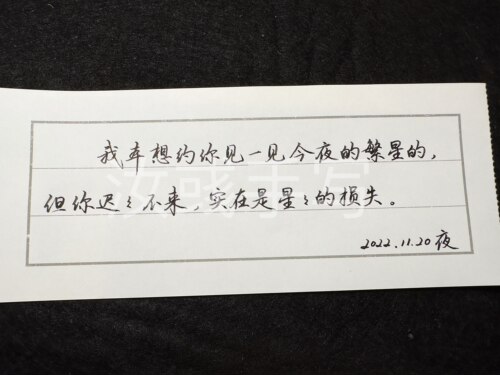 我本想约你见一见今夜的繁星的，
但你迟々不来，实在是星々的损失。
2022.11.20 夜